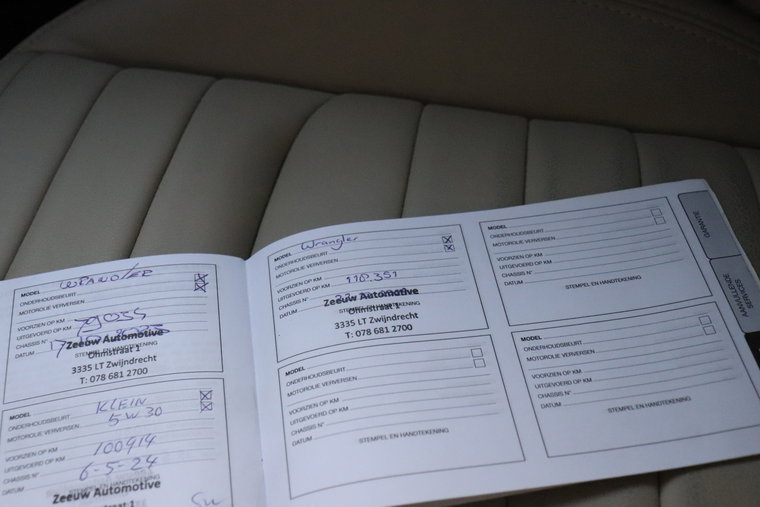 MODEL WRANGLER
ONDERHOUDSBEURT
MOTOROLIE VERVERSEN
VOORZIEN OP KM
UITGEVOERD OP KM 79035
CHASSIS N°
DATUM
STEMPEL EN HANDTEKENING
Zeeuw Automotive
Ohmstraat 1
3335 LT Zwijndrecht
T: 078 681 2700
MODEL
ONDERHOUDSBEURT KLEIN
MOTOROLIE VERVERSEN 5W30
VOORZIEN OP KM
UITGEVOERD OP KM 100914
CHASSIS N°
DATUM 6-5-24
STEMPEL EN HANDTEKENING
Zeeuw Automotive
Ohmstraat 1
MODEL Wrangler
ONDERHOUDSBEURT
MOTOROLIE VERVERSEN
VOORZIEN OP KM
UITGEVOERD OP KM 118.351
CHASSIS N°
DATUM
STEMPEL EN HANDTEKENING
Zeeuw Automotive
Ohmstraat 1
3335 LT Zwijndrecht
T: 078 681 2700
MODEL
ONDERHOUDSBEURT
MOTOROLIE VERVERSEN
VOORZIEN OP KM
UITGEVOERD OP KM
CHASSIS N°
DATUM
STEMPEL EN HANDTEKENING
MODEL
ONDERHOUDSBEURT
MOTOROLIE VERVERSEN
VOORZIEN OP KM
UITGEVOERD OP KM
CHASSIS N°
DATUM
STEMPEL EN HANDTEKENING
MODEL
ONDERHOUDSBEURT
MOTOROLIE VERVERSEN
VOORZIEN OP KM
UITGEVOERD OP KM
CHASSIS N°
DATUM
STEMPEL EN HANDTEKENING
GARANTIE
AANVULLENDE
SERVICES